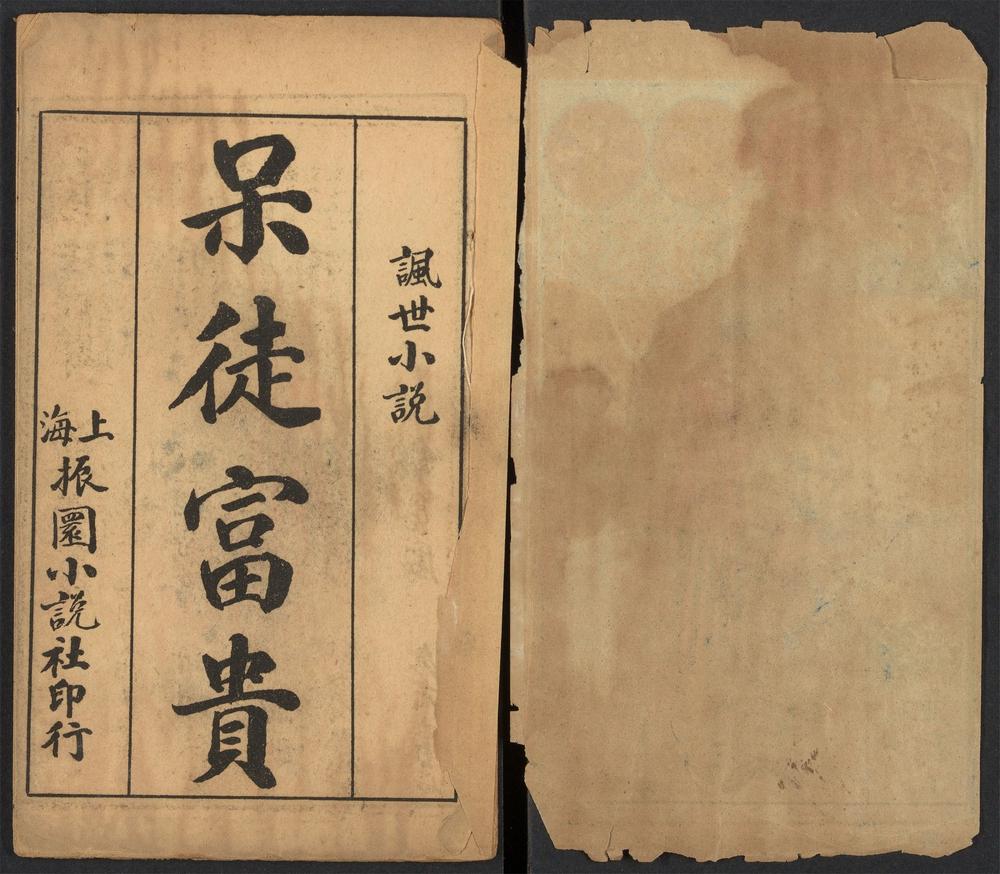 諷世小説
呆徒富貴
上海振圜小説社印行